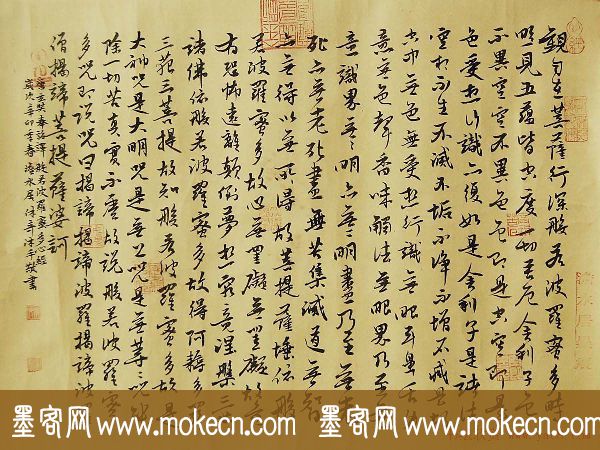 觀自在菩薩行深般若波羅蜜多時
照見五蘊皆空度一切苦厄舍利子色
不異空空不異色色即是空空即是
色受想行識亦復如是舍利子是諸法
空相不生不滅不垢不淨不增不減是故
空中無色無受想行識無眼耳鼻舌身
意無色聲香味觸法無眼界乃至無
意識界無無明亦無無明盡乃至無老
死亦無老死盡無苦集滅道無智
亦無得以無所得故菩提薩埵依般
若波羅蜜多故心無罣礙無罣礙故無
有恐怖遠離顛倒夢想究竟涅槃三世
諸佛依般若波羅蜜多故得阿耨多羅
三藐三菩提故知般若波羅蜜多故是
大神咒是大明咒是無上咒是無等等咒能
除一切苦真實不虛故說般若波羅蜜
多咒即說咒曰揭諦揭諦波羅揭諦波
僧揭諦菩提薩婆訶
唐玄奘奉詔譯般若波羅蜜多心經
歲次辛卯
墨客网 www.mokecn.com 墨客网 www.mokecn.com